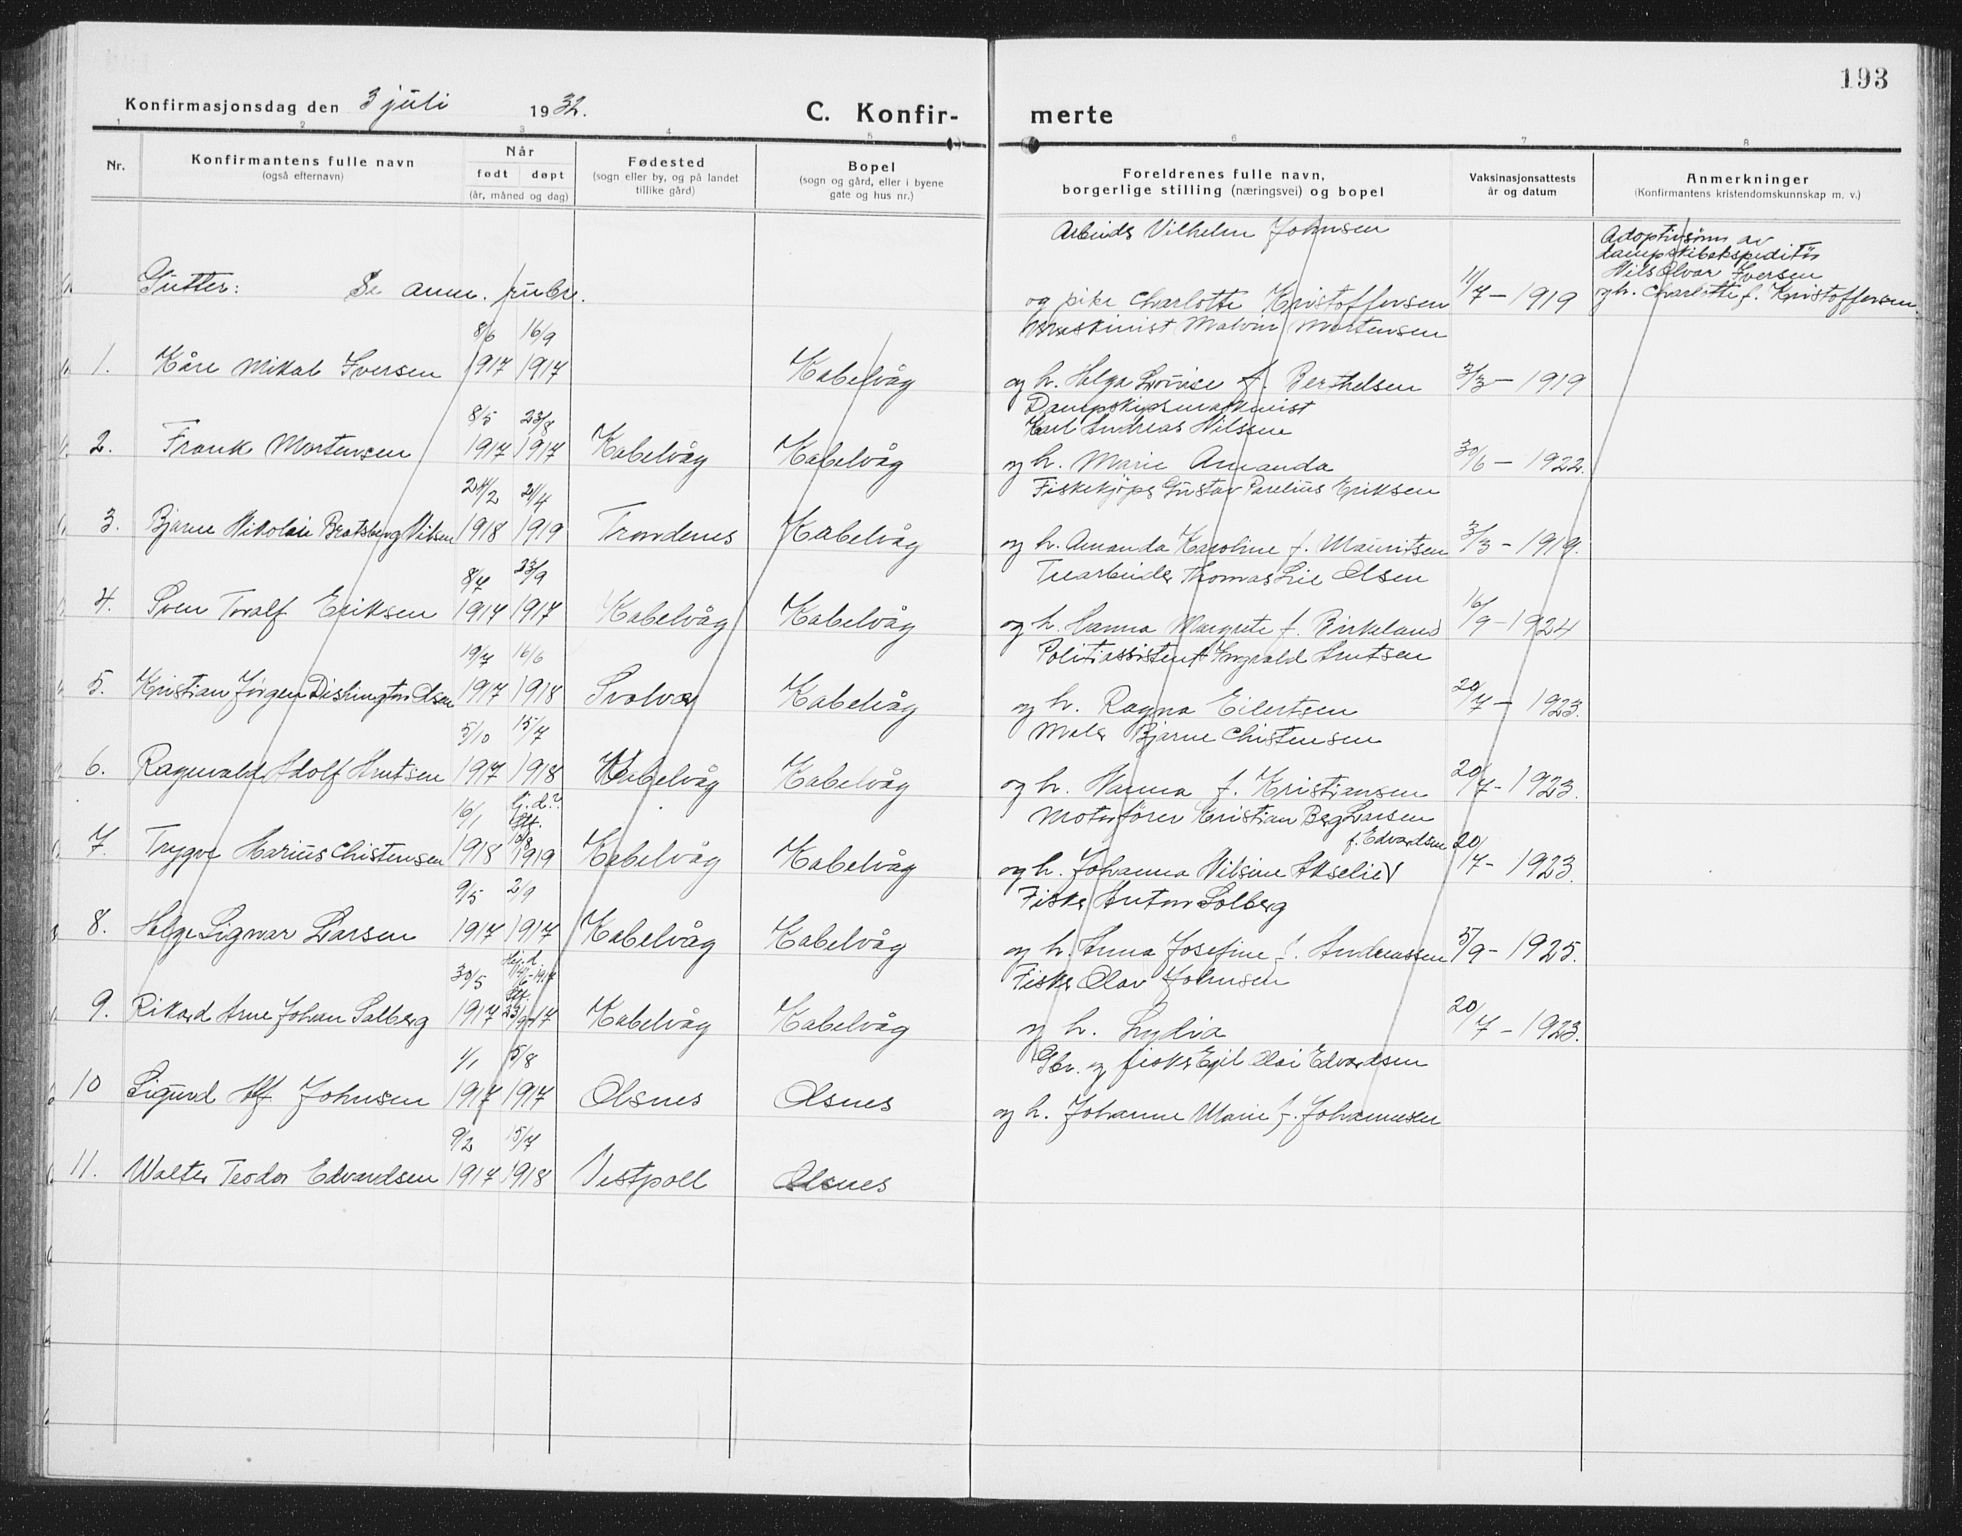 193
Konfirmasjonsdag den 3 juli 1932.
C. Konfir-
merte
1 2 3 4 5 6 7 8
Nr.
Konfirmantens fulle navn
(også efternavn)
Når
født døpt
(år, måned og dag)
Fødested
(sogn eller by, og på landet
tillike gård)
Bopel
(sogn og gård, eller i byene
gate og hus nr.)
Foreldrenes fulle navn,
borgerlige stilling (næringsvei) og bopel
Vaksinasjonsattests
år og datum
Anmerkninger
(Konfirmantens kristendomskunnskap m. v.)
Gutter: Se anm.
8/6 16/9
1. Kåre Mikal Iversen 1917 1917 Kabelvåg
8/5 23/8
2. Frank Mortensen 1917 1917 Kabelvåg Kabelvåg
24/2 21/4
3. Bjarne Nikolai Bratsberg Nilsen 1918 1919 Trondenes Kabelvåg
8/7 23/9
4. Sven Toralf Eriksen 1917 1917 Kabelvåg Kabelvåg
19/7 16/6
5. Kristian Jørgen Dishington Olsen 1917 1918 Svolvær Kabelvåg
5/10 15/7
6. Ragnvald Adolf Knutsen 1917 1918 Kabelvåg Kabelvåg
16/1 hj. d.?
Stf.
7. Trygve Marius Christensen 1918 1919 Kabelvåg Kabelvåg
9/5 2/9
8. Helge Sigvar Larsen 1917 1917 Kabelvåg Kabelvåg
30/5 Hj. d.
Stf.
9. Rikard Arne Johan Solberg 1917 23/9-17 Kabelvåg Kabelvåg
1/1 5/8
10 Sigurd Alf Johnsen 1917 1917 Olsnes Olsnes
9/2 15/7
11. Walter Teodor Edvardsen 1917 1918 Vestpoll Olsnes
Arbeider Vilhelm Johnsen
og pike Charlotte Kristoffersen 11/7 - 1919
Maskinist Malvin Mortensen
og h. Helga Lovise f. Berthelsen 3/3 - 1919
Dampskipsmaskinist
Karl Andreas Nilssen
og h. Marie Amanda 30/6 - 1922.
Fiskekjøper Gustav Parelius Eriksen
og h. Amanda Karoline f. Mauritsen 3/3 - 1919.
Trearbeider Thomas Lie Olsen
og h. Hanna Margrete f. Birkeland 16/9 - 1924
Politiassistent Ingvald Knutsen
og h. Ragna Eilertsen 20/7 - 1923.
Maler Bjarne Christensen
og h. Nanna f. Kristiansen 20/7 - 1923.
Motorfører Kristian Berg Larsen
f. Edvardsen
og h. Johanna Nilsine Akselie 20/7 - 1923.
Fisker Anton Solberg
og h. Anna Josefine f. Andreassen 5/9 - 1925.
Fisker Olav Johnsen
og h. Lydia 20/7 - 1923.
Gbr. og fisker Egil Olai Edvardsen
og h. Johanne Marie f. Johannessen
Adoptivsønn av
dampskibsekspeditør
Nils Olvar Iversen
og h. Charlotte f. Kristoffersen.